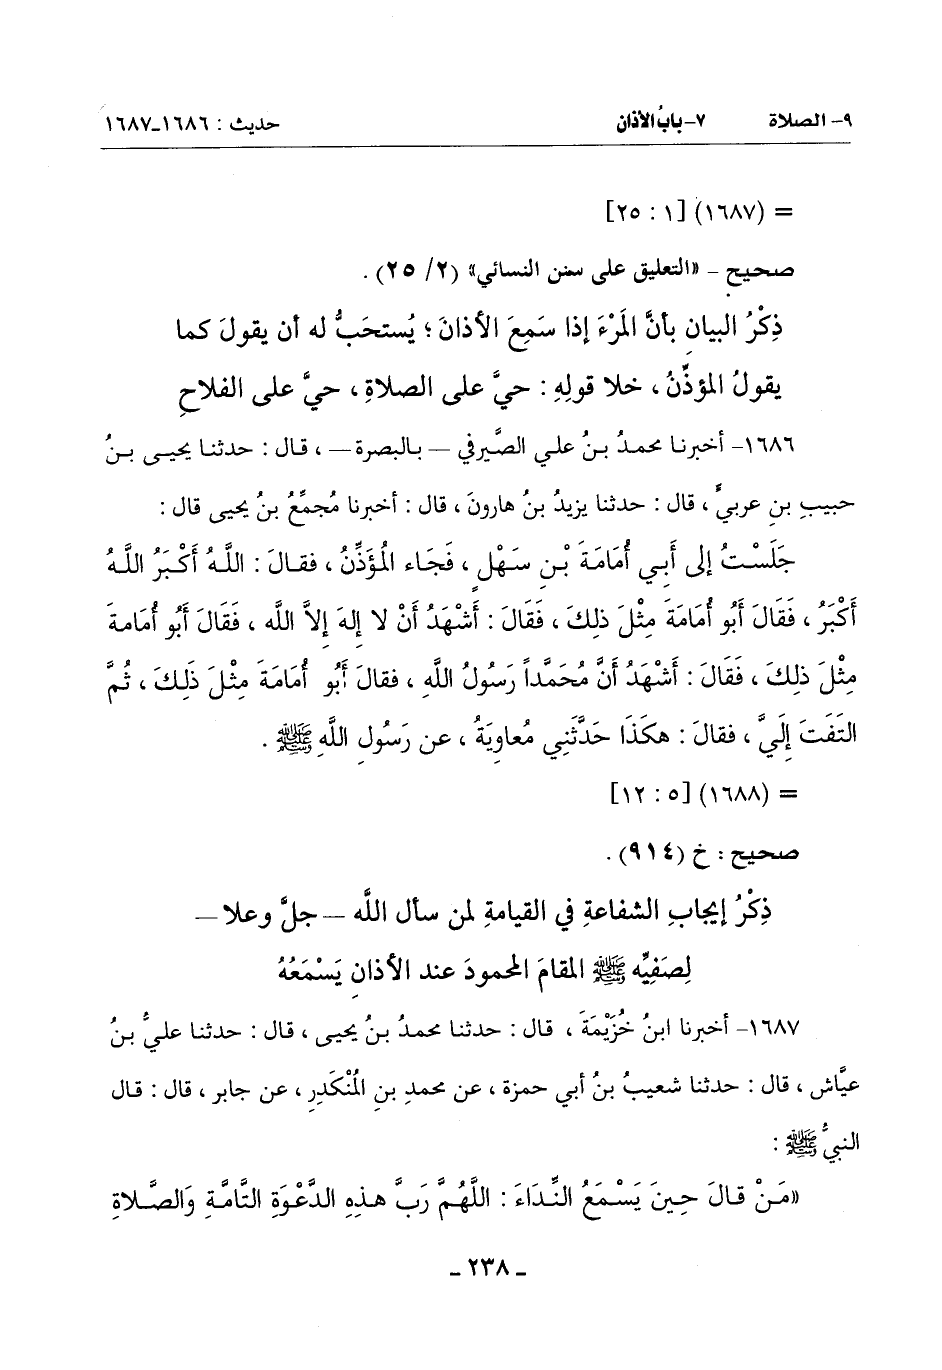 ٩- الصلاة ٧- بابُ الأذان حديث : ١٦٨٦-١٦٨٧
= (١٦٨٧) [١ : ٢٥]
صحيح - «التعليق على سنن النسائي» (٢/ ٢٥) .
ذِكْرُ البيانِ بأنَّ المَرْءَ إذا سَمِعَ الأذانَ ؛ يُستحَبُّ له أن يقولَ كما
يقولُ المؤذِّنُ ، خلا قولِهِ : حيَّ على الصلاةِ ، حيَّ على الفلاحِ
١٦٨٦- أخبرنا محمدُ بنُ علي الصَّيرفي – بالبصرة – ، قال : حدثنا يحيى بنُ
حبيبِ بنِ عربيٍّ ، قال : حدثنا يزيدُ بنُ هارونَ ، قال : أخبرنا مُجمِّعُ بنُ يحيى قال :
جَلَسْتُ إلى أَبِي أُمَامَةَ بْنِ سَهْلٍ ، فَجَاء المُؤَذِّنُ ، فقالَ : اللَّهُ أَكْبَرُ اللَّهُ
أَكْبَرُ ، فَقَالَ أَبُو أُمَامَةَ مِثْلَ ذلِكَ ، فَقَالَ : أَشْهَدُ أَنْ لا إلهَ إلاَّ اللَّه ، فَقَالَ أَبُو أُمَامةَ
مِثْلَ ذلِكَ ، فَقَالَ : أَشْهَدُ أَنَّ مُحَمَّداً رَسُولُ اللَّهِ ، فقالَ أَبُو أُمَامَةَ مِثْلَ ذَلِكَ ، ثُمَّ
التَفَتَ إلَيَّ ، فقالَ : هكَذَا حَدَّثَنِي مُعاوِيَةُ ، عن رَسُولِ اللَّهِ ﷺ .
= (١٦٨٨) [٥ : ١٢]
صحيح : خ (٩١٤) .
ذِكْرُ إيجابِ الشفاعةِ في القيامةِ لمن سأل اللَّه – جلَّ وعلا –
لِصَفِيِّه ﷺ المقامَ المحمودَ عند الأذانِ يَسْمَعُهُ
١٦٨٧- أخبرنا ابنُ خُزَيْمَةَ ، قال : حدثنا محمدُ بنُ يحيى ، قال : حدثنا عليُّ بنُ
عيَّاش ، قال : حدثنا شعيبُ بنُ أبي حمزة ، عن محمدِ بنِ المُنْكَدِرِ ، عن جابر ، قال : قال
النبيُّ ﷺ :
«مَنْ قالَ حِينَ يَسْمَعُ النِّدَاءَ : اللَّهُمَّ رَبَّ هذِهِ الدَّعْوَةِ التَّامَّةِ وَالصَّلاةِ
- ٢٣٨ -